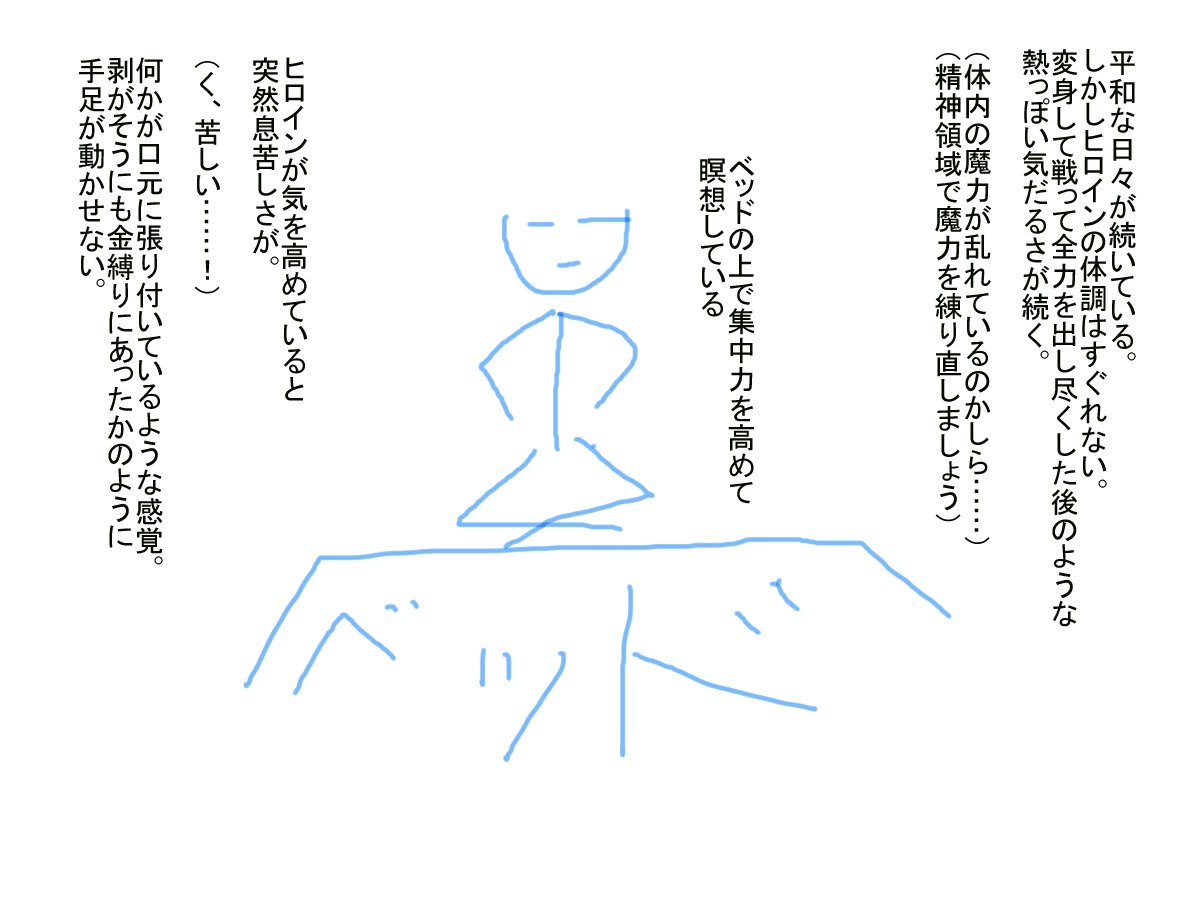 平和な日々が続いている。
しかしヒロインの体調はすぐれない。
変身して戦って全力を出し尽くした後のような
熱っぽい気だるさが続く。
(体内の魔力が乱れているのかしら……)
(精神領域で魔力を練り直しましょう)
ベッドの上で集中力を高めて
瞑想している
ヒロインが気を高めていると
突然息苦しさが。
(く、苦しい……!)
何かが口元に張り付いているような感覚。
剥がそうにも金縛りにあったかのように
手足が動かせない。
ベッド